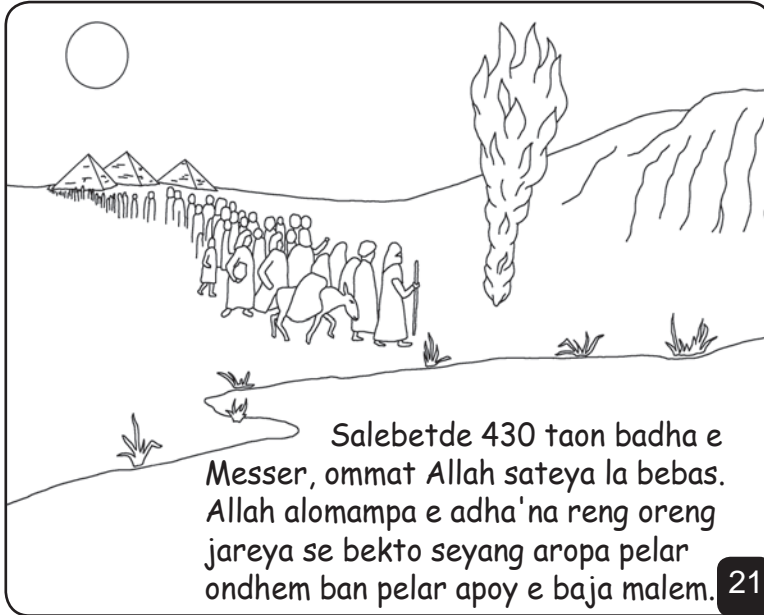 Salebetde 430 taon badha e
Messer, ommat Allah sateya la bebas.
Allah alomampa e adha'na reng oreng
jareya se bekto seyang aropa pelar
ondhem ban pelar apoy e baja malem.
21